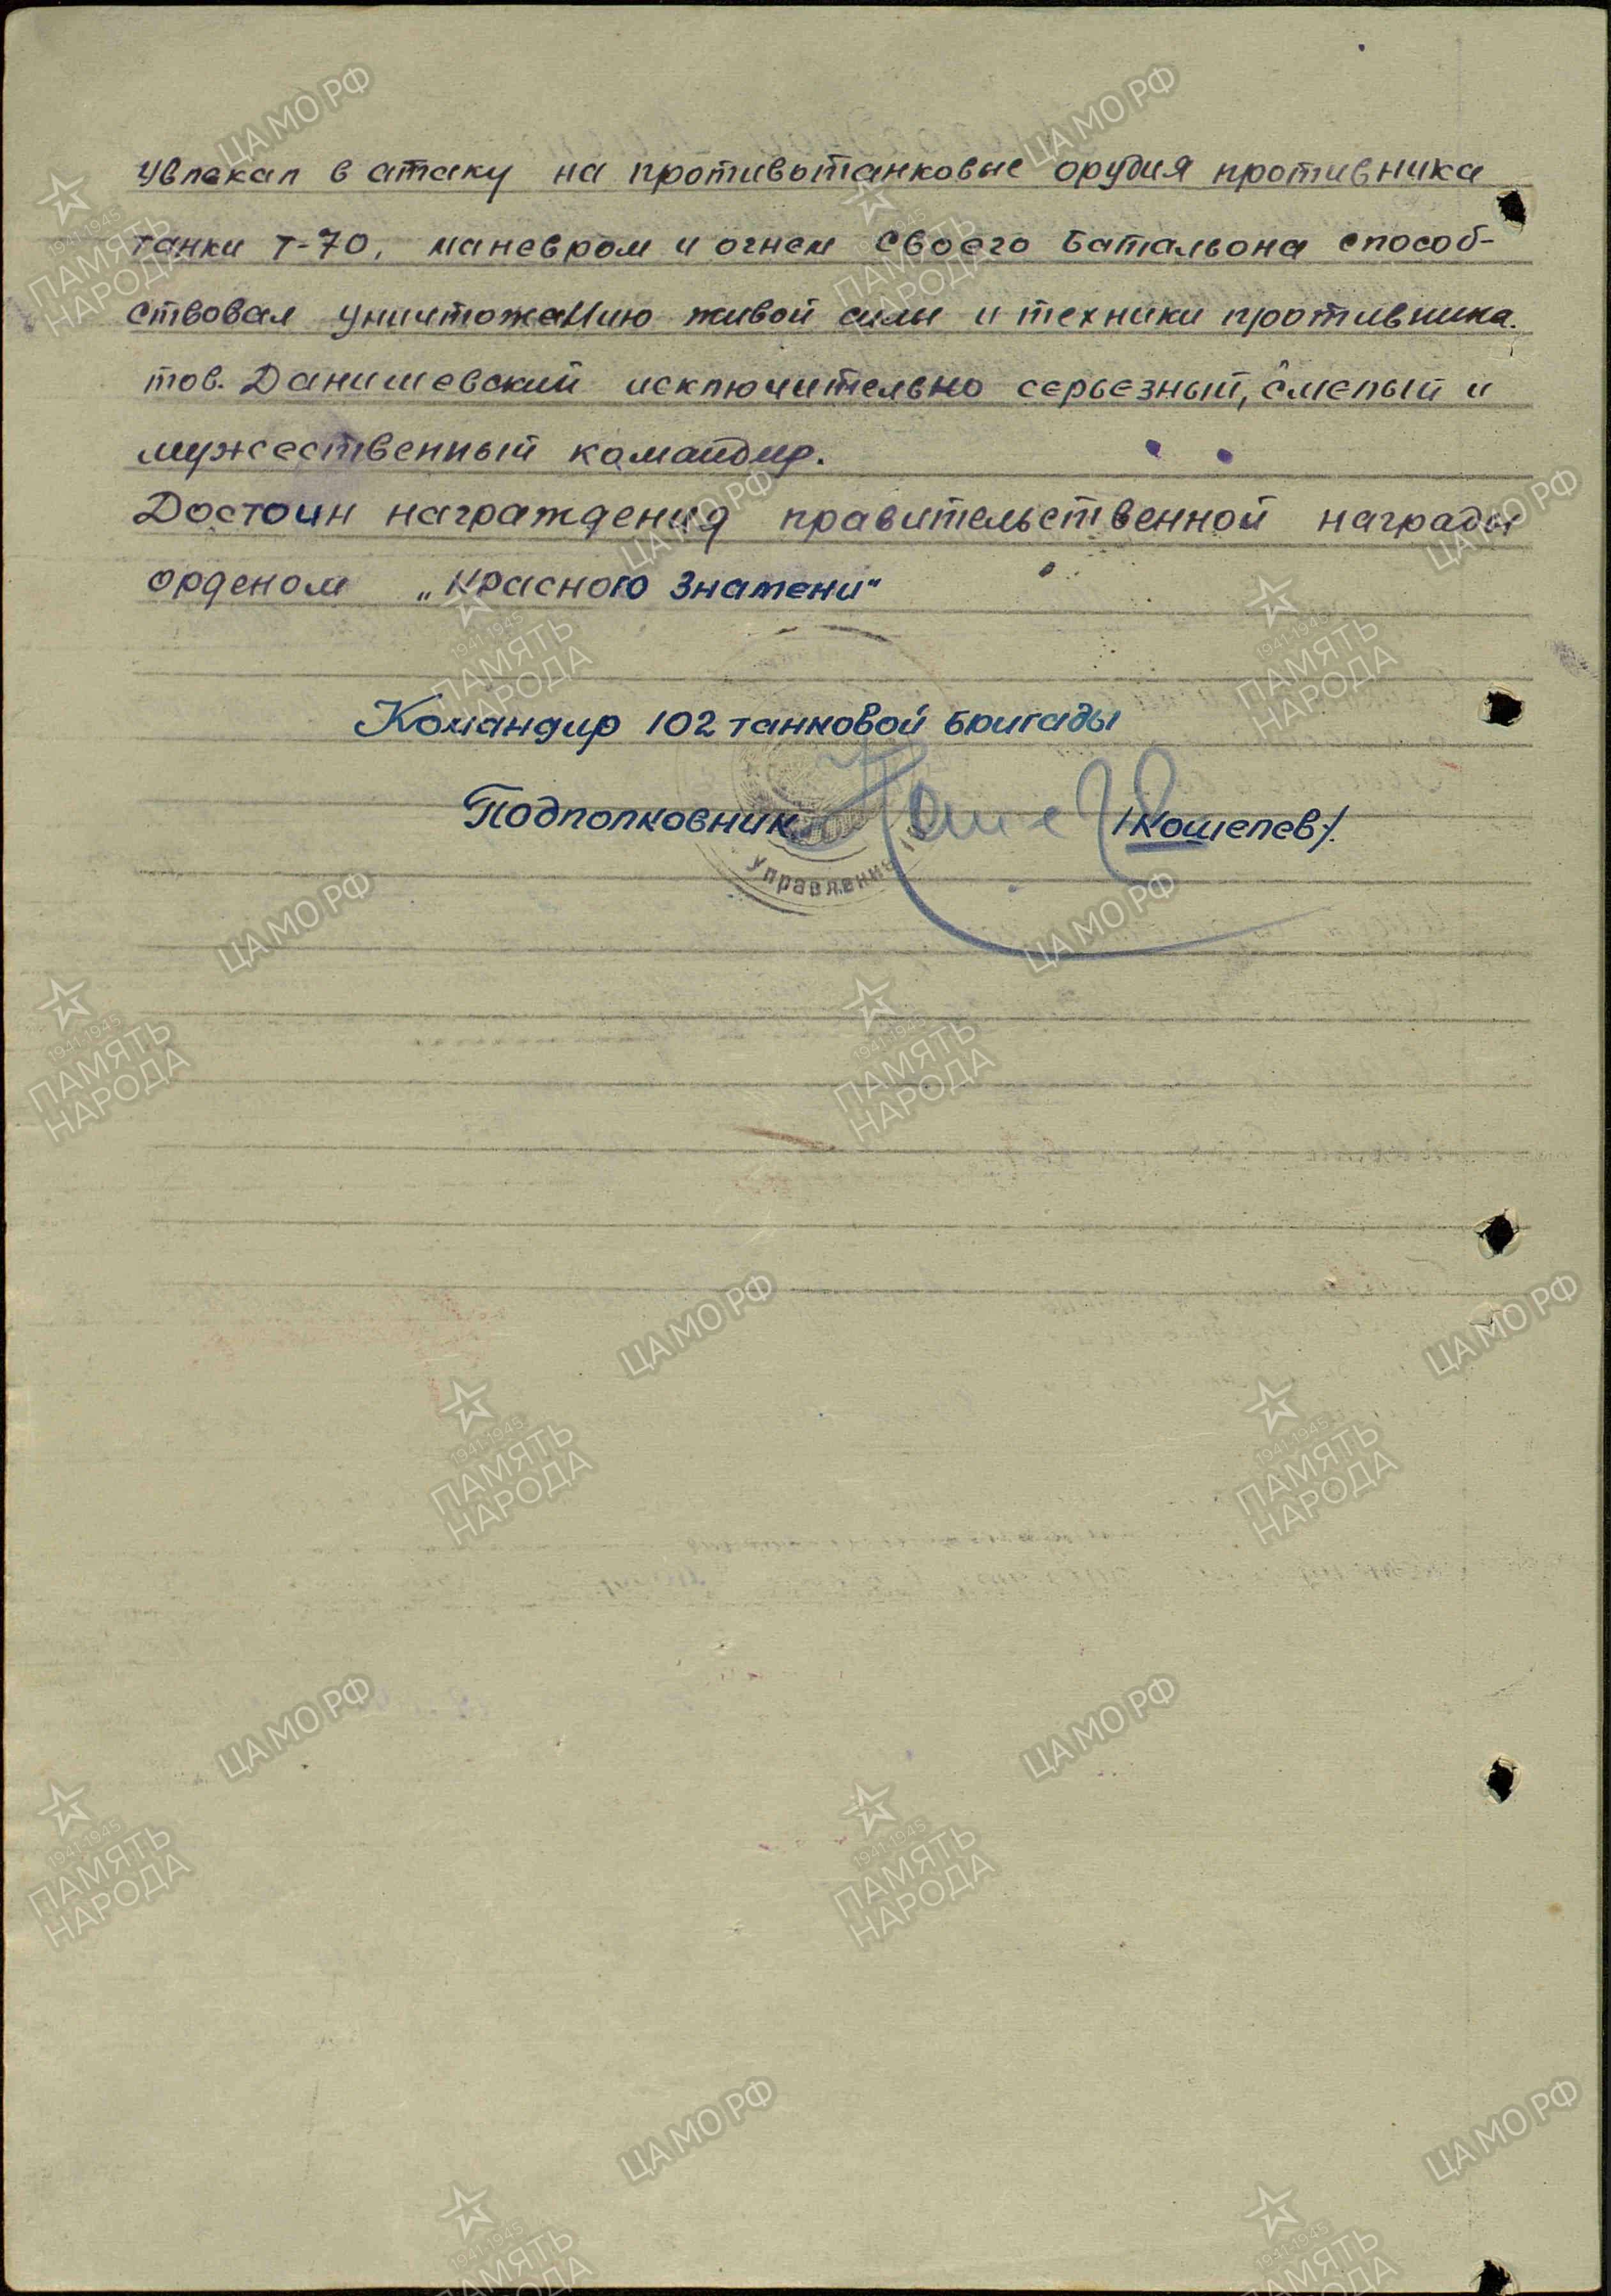 увлекал в атаку на противотанковые орудия противника
танки Т-70, маневром и огнем своего батальона способ-
ствовал уничтожению живой силы и техники противника.
тов. Данишевский исключительно серьезный, смелый и
мужественный командир.
Достоин награждения правительственной награды
орденом „Красного Знамени"
Командир 102 танковой бригады
Подполковник /Кошелев/.
Управление